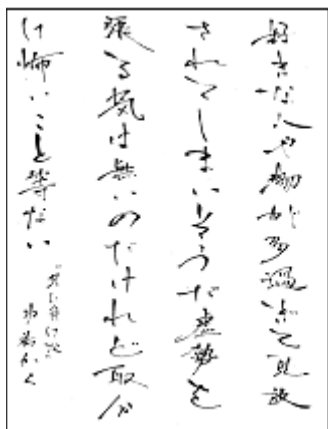 好きな人や物が多過ぎて見放
されてしまいそうだ虚勢を
張る気は無いのだけれど取分
け怖いこと等ない
"月に負け犬"